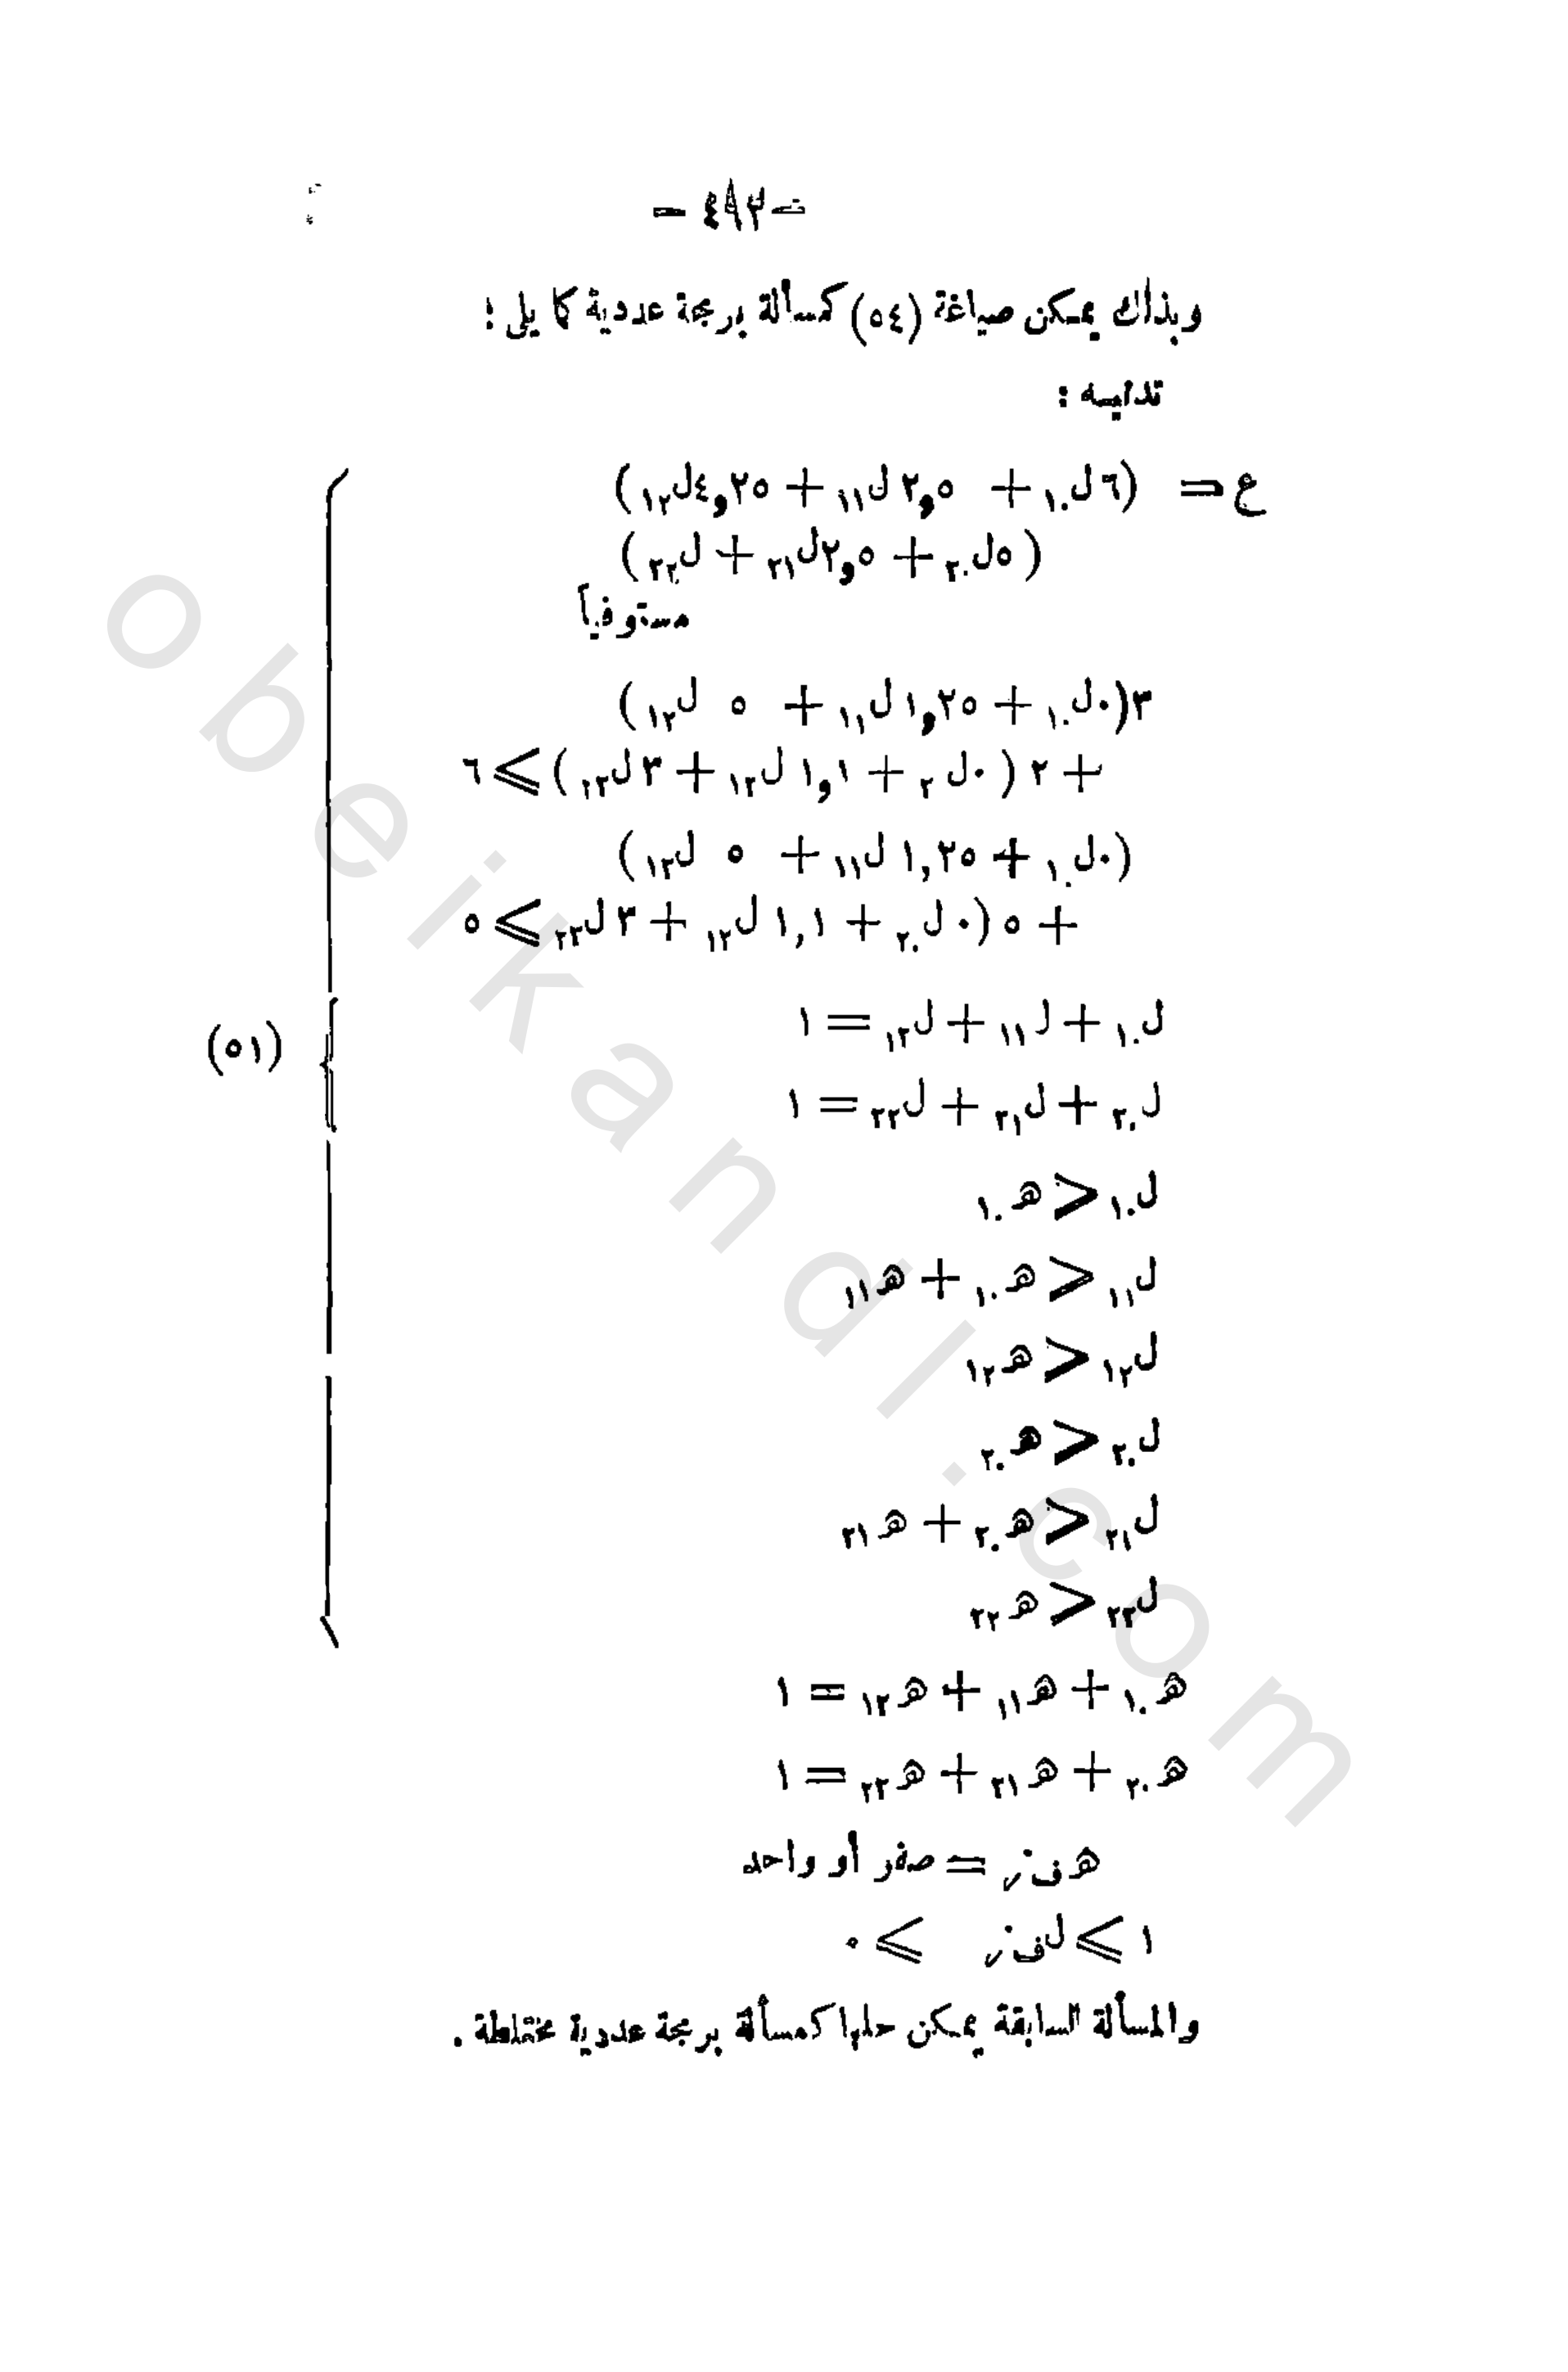 – ٤٩٣ –
وبذلك يمكن صياغة (٥٤) كمسألة برمجة عددية كما يلى :
تدنيه :
ع = (٦ ل١٠ + ٢,٥ ل١١ + ٤,٢٥ ل١٢)
(٥ ل٢٠ + ٢,٥ ل٢١ + ل٢٢)
مستوفياً
٣(٠ ل١٠ + ١,٢٥ ل١١ + ٥ ل١٢)
+ ٢ (٠ ل٢ + ١,١ ل١٢ + ٣ ل٢٢) ⩾ ٦
(٠ ل١٠ + ١,٢٥ ل١١ + ٥ ل١٢)
+ ٥ (٠ ل٢٠ + ١,١ ل١٢ + ٣ ل٢٢ ⩾ ٥
ل١٠ + ل١١ + ل١٢ = ١
ل٢٠ + ل٢١ + ل٢٢ = ١
ل١٠ < هـ١٠
ل١١ < هـ١٠ + هـ١١
ل١٢ < هـ١٢
ل٢٠ < هـ٢٠
ل٢١ < هـ٢٠ + هـ٢١
ل٢٢ < هـ٢٢
(٥١)
هـ١٠ + هـ١١ + هـ١٢ = ١
هـ٢٠ + هـ٢١ + هـ٢٢ = ١
هـ ف ر = صفر أو واحد
١ ⩾ ل ف ر ⩾ ٠
والمسألة السابقة يمكن حلها كمسألة برمجة عددية مختلطة .
obeikandl.com